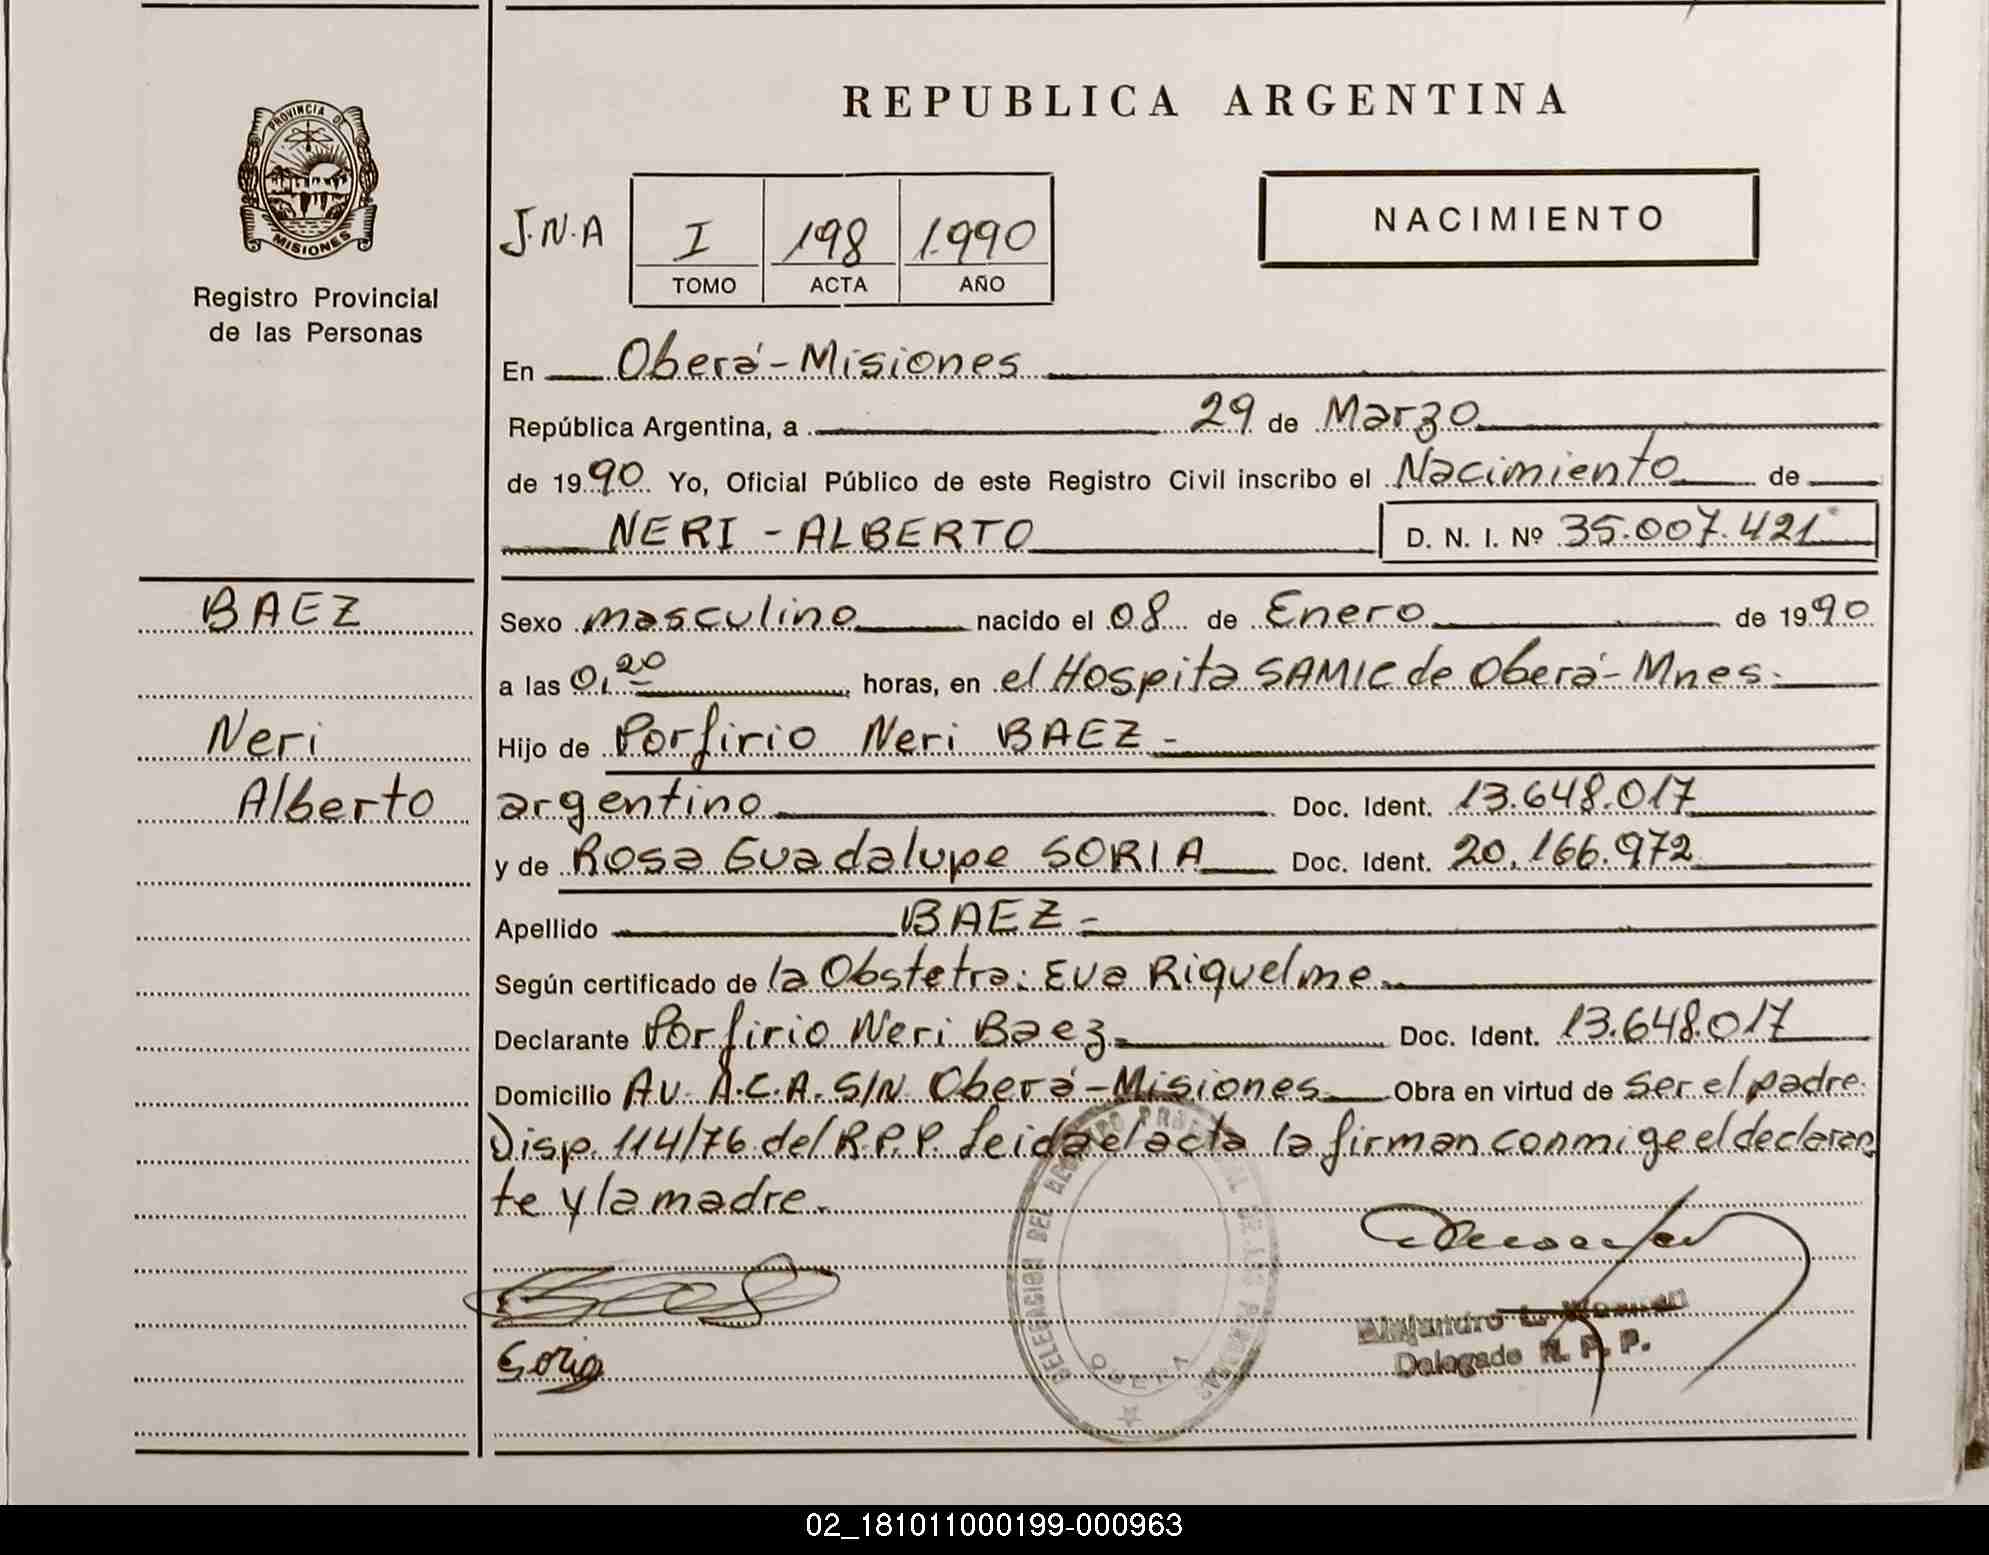 REPUBLICA ARGENTINA
PROVINCIA DE
MISIONES
Registro Provincial
de las Personas
NACIMIENTO
J.N.A I 198 1.990
TOMO ACTA AÑO
En Oberá - Misiones
República Argentina, a 29 de Marzo
de 1990 Yo, Oficial Público de este Registro Civil inscribo el Nacimiento de
NERI - ALBERTO D. N. I. Nº 35.007.421
BAEZ
Neri
Alberto
Sexo masculino nacido el 08 de Enero de 1990
a las 0,20 horas, en el Hospita SAMIC de Oberá - Mnes.
Hijo de Porfirio Neri BAEZ -
argentino Doc. Ident. 13.648.017
y de Rosa Guadalupe SORIA Doc. Ident. 20.166.972
Apellido BAEZ -
Según certificado de la Obstetra: Eva Riquelme
Declarante Porfirio Neri Baez Doc. Ident. 13.648.017
Domicilio AV. A.C.A. S/N Oberá - Misiones Obra en virtud de ser el padre.
Disp. 114/76 del R.P.P. Leida el acta la firman conmigo el declaran
te y la madre.
Soria
DELEGACION DEL REGISTRO PROVINCIAL DE LAS PERSONAS
OBERA
Alejandro L.
Delegado R. P. P.
02_181011000199-000963